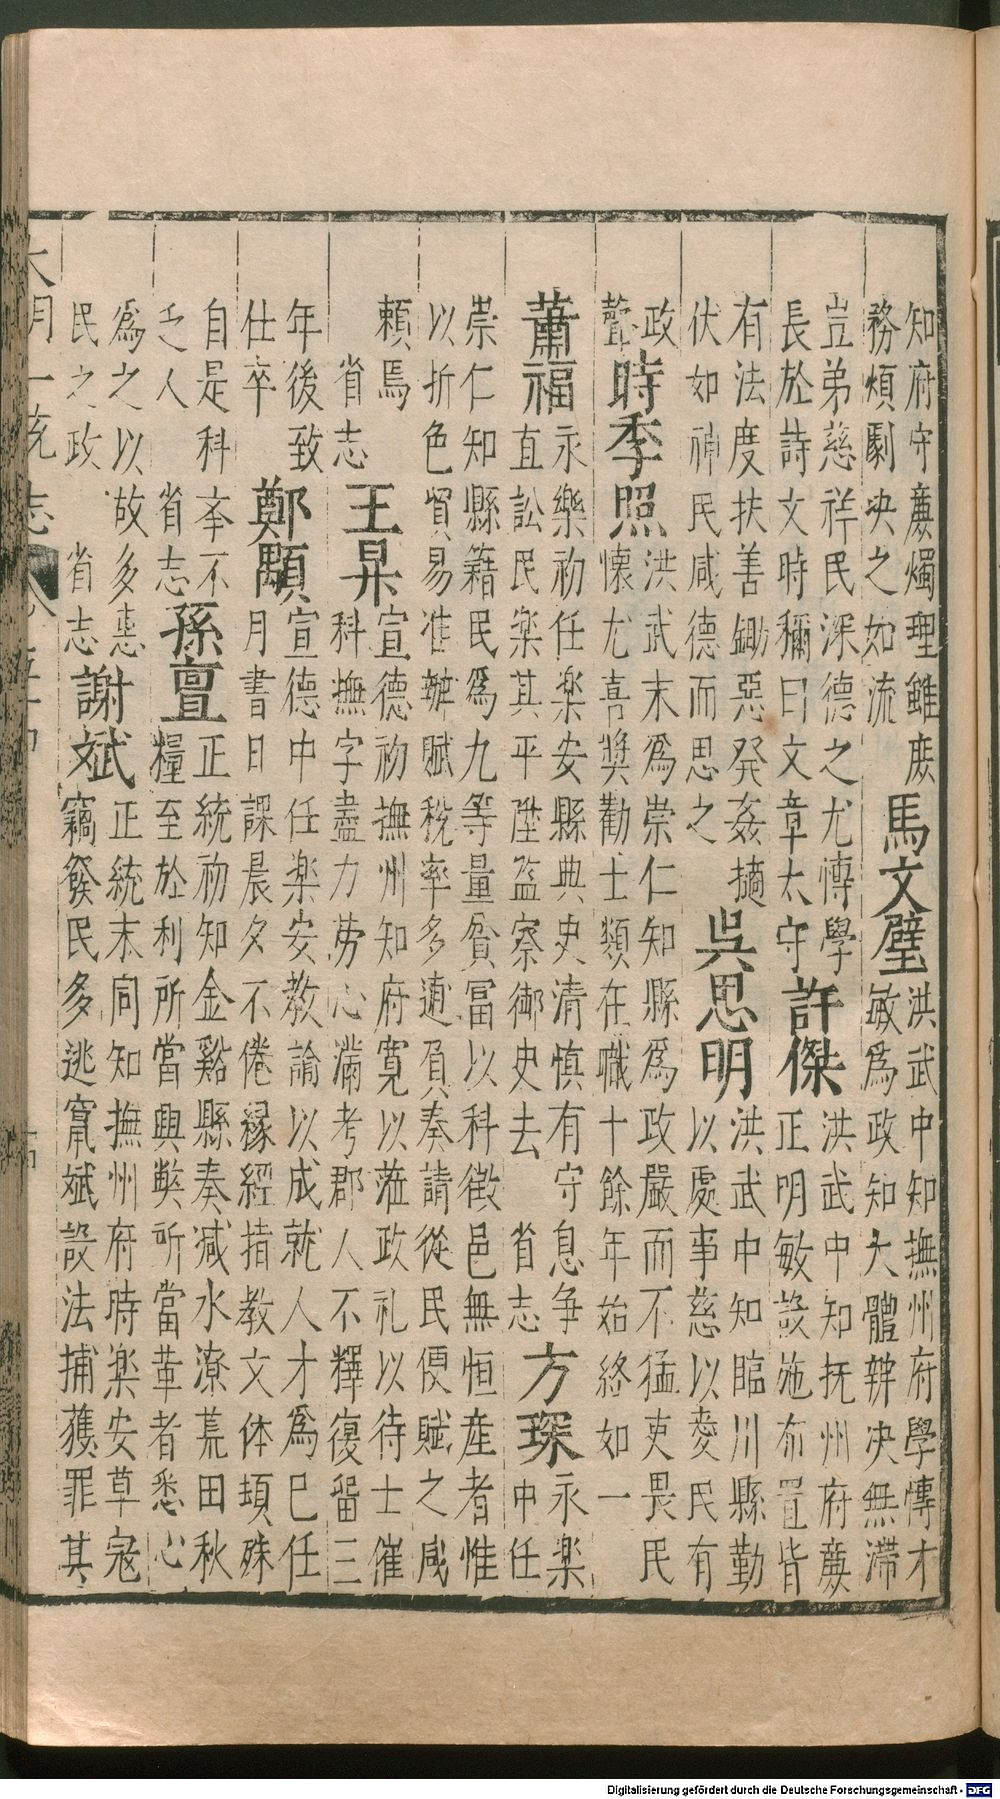 知府守廉燭理雖庶
務煩劇决之如流
馬文璧
洪武中知撫州府學博才
敏為政知大體辨决無滯
豈弟慈祥民深德之尤博學
長於詩文時稱曰文章太守
許傑
洪武中知抚州府廉
正明敏設施布置皆
有法度扶善鋤惡発姦擿
伏如神民咸德而思之
吳思明
洪武中知臨川縣勤
以處事慈以愛民有
政
聲
時季照
洪武末為崇仁知縣為政嚴而不猛吏畏民
懷尤喜奬勸士類在職十餘年始終如一
蕭福
永樂初任楽安縣典史清慎有守息争
直訟民楽其平陞监察御史去 省志
方琛
永楽
中任
崇仁知縣籍民爲九等量貧冨以科徵邑無恒産者惟
以折色貿易准辦賦稅率多逋負奏請從民便賦之咸
頼焉
省志
王昇
宣德初撫州知府寛以蒞政礼以待士催
科撫字盡力勞心滿考郡人不釋復畱三
年後致
仕卒
鄭顒
宣德中任楽安教諭以成就人才爲已任
月書日課晨夕不倦縁經措教文体頓殊
自是科夲不
乏人 省志
孫亶
正統初知金谿縣奏减水潦荒田秋
糧至於利所當興弊所當革者悉心
爲之以故多恵
民之政 省志
謝斌
正統末同知撫州府時楽安草冦
竊發民多逃竄斌設法捕獲罪其
大明一统志 卷五十四
Digitalisierung gefördert durch die Deutsche Forschungsgemeinschaft - DFG